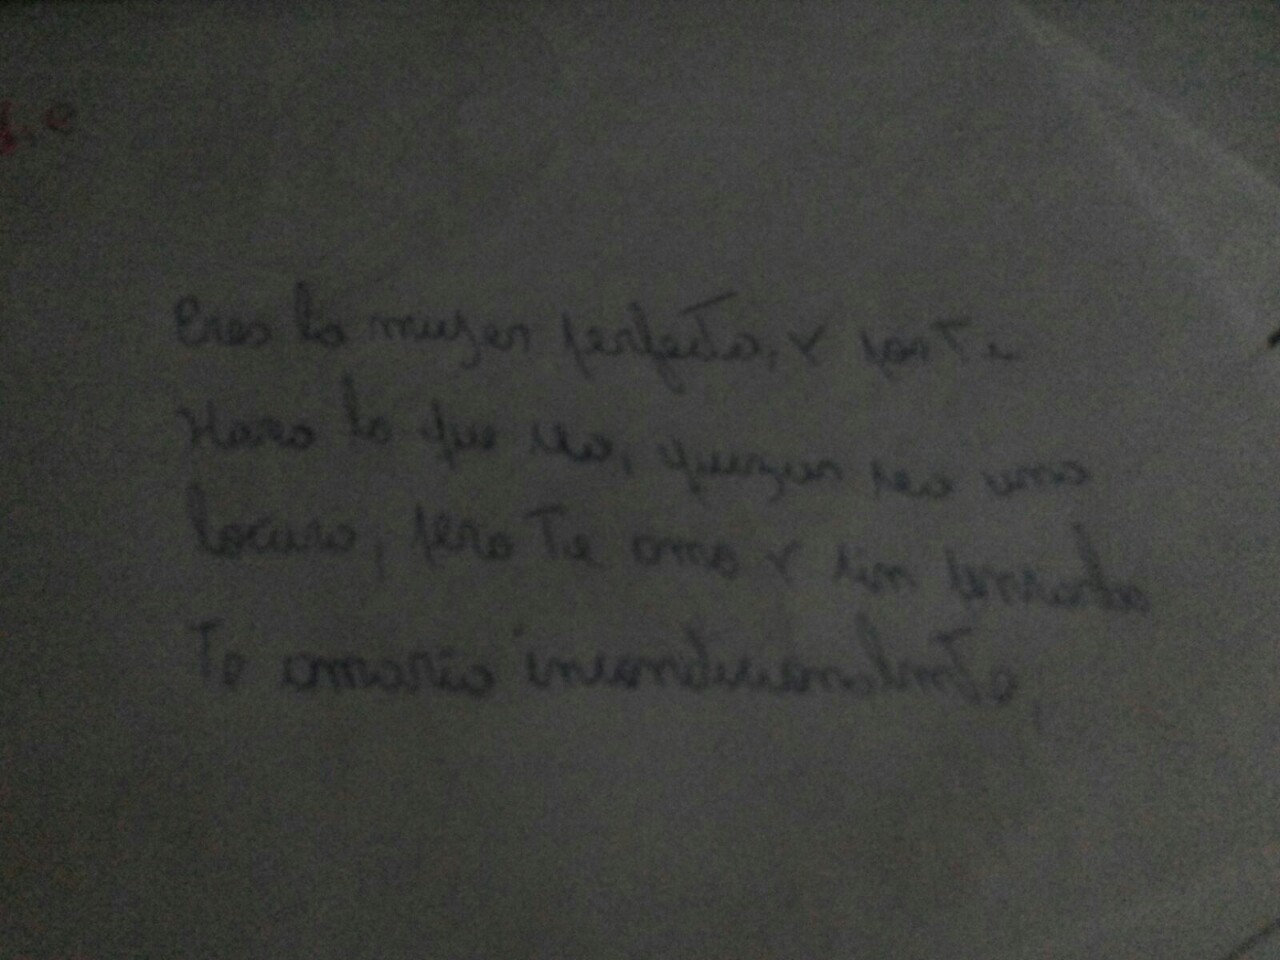 Eres la mujer perfecta, y por Ti
Hare lo que sea, quizas sea una
locura, pero Te amo y sin
Te amaria incondicionalmente,